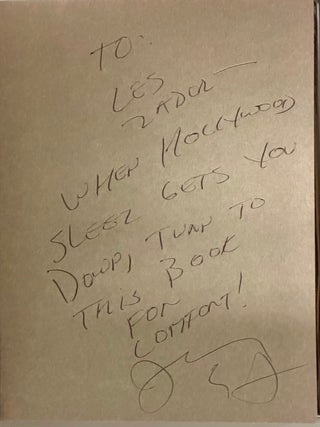 TO:
LES
ZADOR—
WHEN HOLLYWOOD
SLEEZ GETS YOU
DOWN, TURN TO
THIS BOOK
FOR
COMFORT!